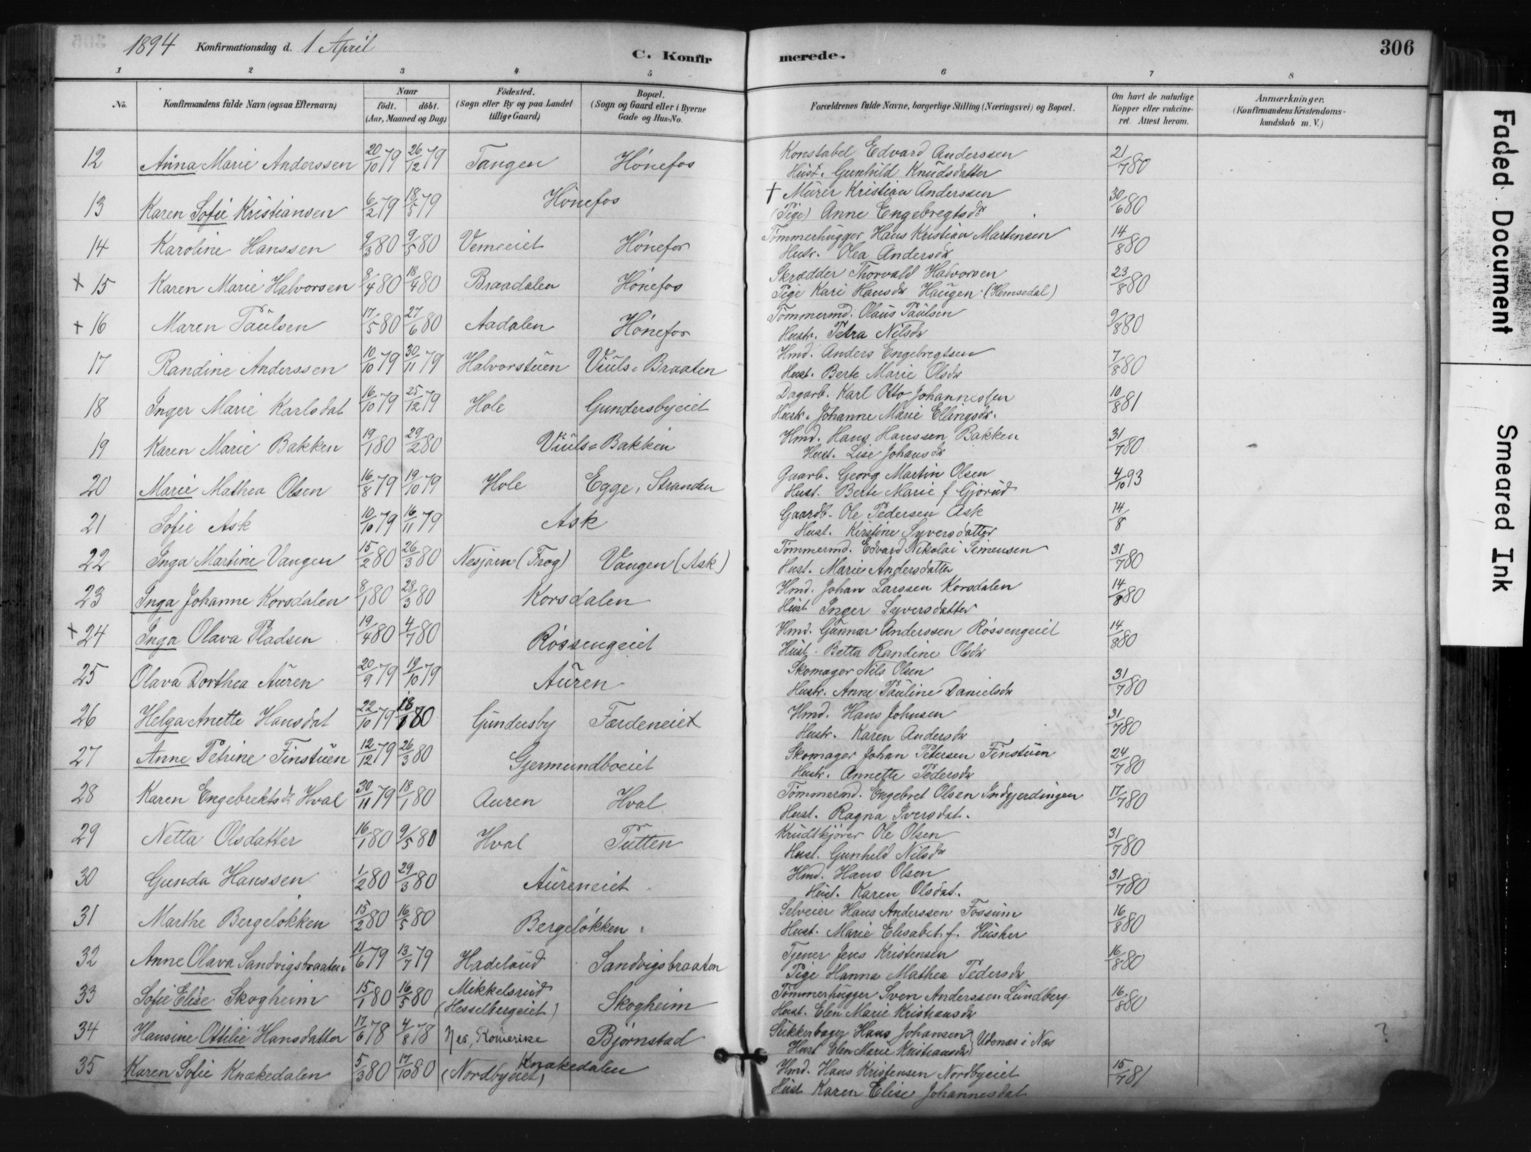 1894 Konfirmationsdag d. 1 April
C. Konfirmerede.
306
1 2 3 4 5 6 7 8
No. Konfirmandens fulde Navn (ogsaa Efternavn) Naar født. døbt. (Aar, Maaned og Dag) Fødested. (Sogn eller By og paa Landet tillige Gaard) Bopæl. (Sogn og Gaard eller i Byerne Gade og Hus-No. Forældrenes fulde Navne, borgerlige Stilling (Næringsvei) og Bopæl. Om havt de naturlige Kopper eller vaccineret. Attest herom. Anmærkninger. (Konfirmandens Kristendomskundskab m. V.)
12 Anna Marie Anderssen 20/10 79 26/12 79 Tangen Hönefos Konstabel Edvard Anderssen 21/7 80
Hust. Gunhild Knudsdatter
13 Karen Sofie Kristiansen 6/2 79 18/5 79 Hönefos † Murer Kristian Anderssen 30/6 80
(Pige) Anne Engebregtsdr
14 Karoline Hanssen 9/3 80 9/5 80 Vemeeiet Hönefos Tømmerhugger Hans Kristian Martinsen 14/8 80
Hustr. Olea Andersdr
+ 15 Karen Marie Halvorsen 8/4 80 18/4 80 Braadalen Hönefos Skrædder Thorvald Halvorsen 23/8 80
Pige Kari Hansdr Haugen (Hemsedal)
+ 16 Maren Paulsen 17/5 80 27/6 80 Aadalen Hönefos Tømmermd. Olaus Paulsen 9/8 80
Hustr. Petra Nilsdr
17 Randine Anderssen 10/10 79 30/11 79 Halvorstuen Viuls Braaten Hmd. Anders Engebregtsen 7/8 80
Hust. Berte Marie Olsdr
18 Inger Marie Karlsdat 16/10 79 25/12 79 Hole Gundersbyeiet Dagarb. Karl Otto Johannesen 10/8 81
Hustr. Johanne Marie Ellingsdr.
19 Karen Marie Bakken 19/1 80 29/2 80 Viuls Bakken Hmd. Hans Hanssen Bakken 31/7 80
Hust. Lise Johansdr
20 Marie Mathea Olsen 16/8 79 19/10 79 Hole Egge, Stranden Gaarb. Georg Martin Olsen 4/10 93
Hust. Berte Marie f. Gjorud
21 Sofie Ask 10/10 79 16/11 79 Ask Gaardb. Ole Pedersen Ask 14/8
Hust. Kirstine Syversdatter
22 Inga Martine Vangen 15/2 80 26/3 80 Nesjarn (Frog) Vangen (Ask) Tømmermd. Edvard Nikolai Simensen 31/7 80
Hust. Marie Andersdatter
23 Inga Johanne Korsdalen 8/1 80 28/3 80 Korsdalen Hmd. Johan Larssen Korsdalen 14/8 80
Hust. Inger Syversdatter
+ 24 Inga Olava Pladsen 19/4 80 4/7 80 Røssengeiet Hmd. Gunnar Anderssen Røssengeiet 14/8 80
Hust. Betta Randine Olsdr
25 Olava Dorthea Auren 20/9 79 19/10 79 Auren Skomager Nils Olsen 31/7 80
Hustr. Anne Pauline Danielsdr
26 Helga Anette Hansdat 22/10 79 18/1 80 Gundersby Fordeneiet Hmd. Hans Johnsen 31/7 80
Hustr. Karen Andersdr
27 Anne Petrine Finstuen 12/12 79 26/3 80 Gjermundboeiet Skomager Johan Petersen Finstuen 24/7 80
Hustr. Annette Pedersdr
28 Karen Engebrektsdr Hval 20/11 79 18/1 80 Auren Hval Tømmermd. Engebret Olsen Indgjerdingen 17/7 80
Hust. Ragna Iversdat.
29 Netta Olsdatter 16/1 80 9/5 80 Hval Putten Krudtkjører Ole Olsen 31/7 80
Hust. Gunhild Nilsdr
30 Gunda Hanssen 1/2 80 29/3 80 Aureneiet Hmd. Hans Olsen 31/7 80
Hust. Karen Olsdat.
31 Marthe Bergeløkken 15/2 80 16/5 80 Bergeløkken Selveier Hans Anderssen Fossum 16/8 80
Hust. Marie Elisabet f. Husher
32 Anne Olava Sandvigsbraaten 11/6 79 13/7 79 Hadeland Sandvigsbraaten Tjener Jens Kristensen 16/8 80
Pige Hanna Mathea Pedersdr
33 Sofie Elise Skogheim 15/1 80 16/5 80 Mikkelsrud (Hesselbergeiet) Skogheim Tømmerhugger Sven Anderssen Lundberg 16/8 80
Hust. Elen Marie Kristiansdr
34 Hansine Ottilie Hansdatter 17/6 78 4/8 78 Nes, Romerike Bjørnstad Sukkerbager Hans Johansen, Udenæs i Nes ?
Hust Elen Marie Kristiansdr
35 Karen Sofie Knækedalen 5/3 80 17/10 80 (Nordbyeiet) Knækedalen Hmd. Hans Kristensen Nordbyeiet 15/7 81
Hust Karen Elise Johannesdat
Faded Document
Smeared Ink